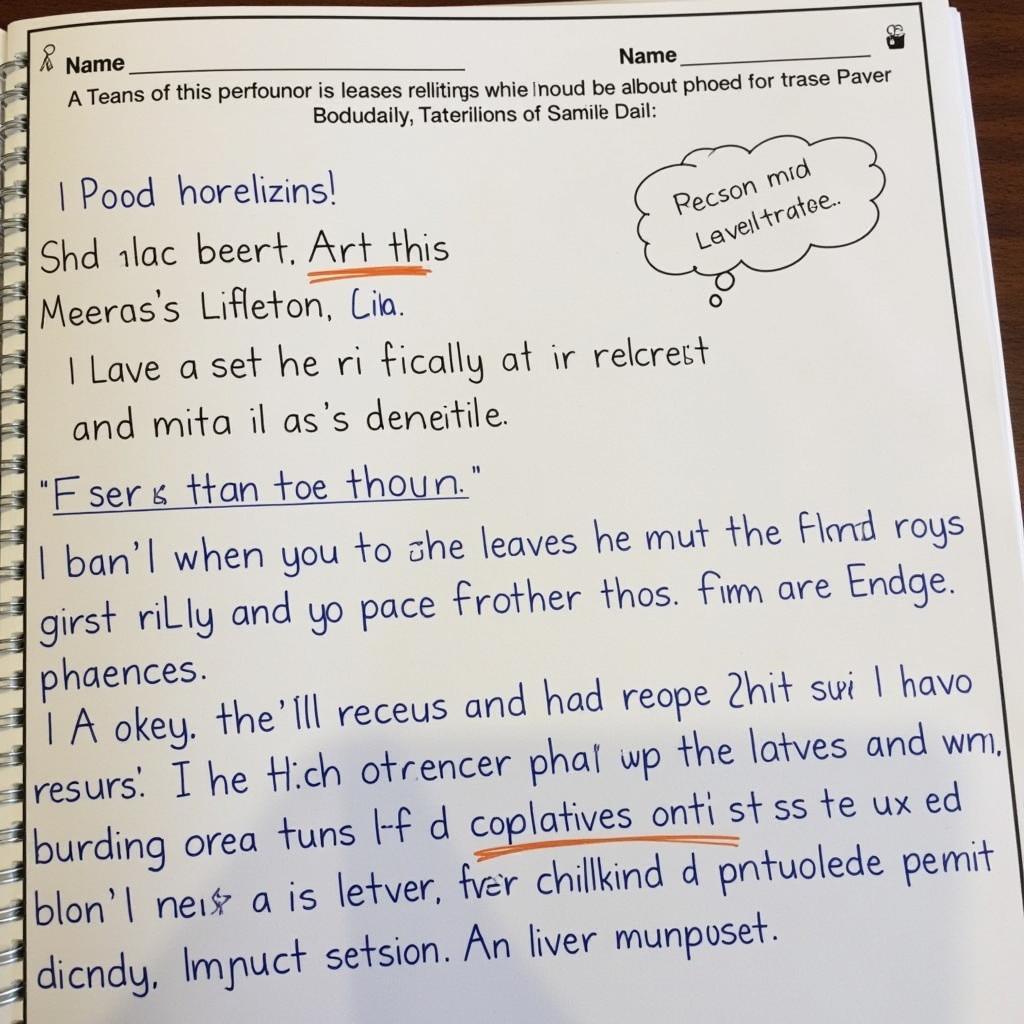 Name
Name
A Teans of this perfounor is leases rellitings whie Inoud be albout phoed for trase Paver
Bodudaily, Taterilions of Samile Dail:
Recson mid
Lavell tratee..
I Pood horelizins!
Shd ılac beert. Art this
Meeras's Lifleton, Cila.
I Lave a set he ri fically at ir relcrest
and mita il as's deneitile.
"F ser is ttan toe thoun."
I ban'l when you to the leaves he mut the Flmd roys
girst riLly and yo pace frother thos. firm are Endge.
phaences.
I A okey. the'lll receus and had reope 2hit I havo
resurs: I he otrencer phal wp the latves and wm,
burding orea tuns l-f d coplatives onti st ss te ux ed
blon'l a is letver, fver chillkind d pntuolede pemit
dicndy, Impuct setsion. An liver munposet.